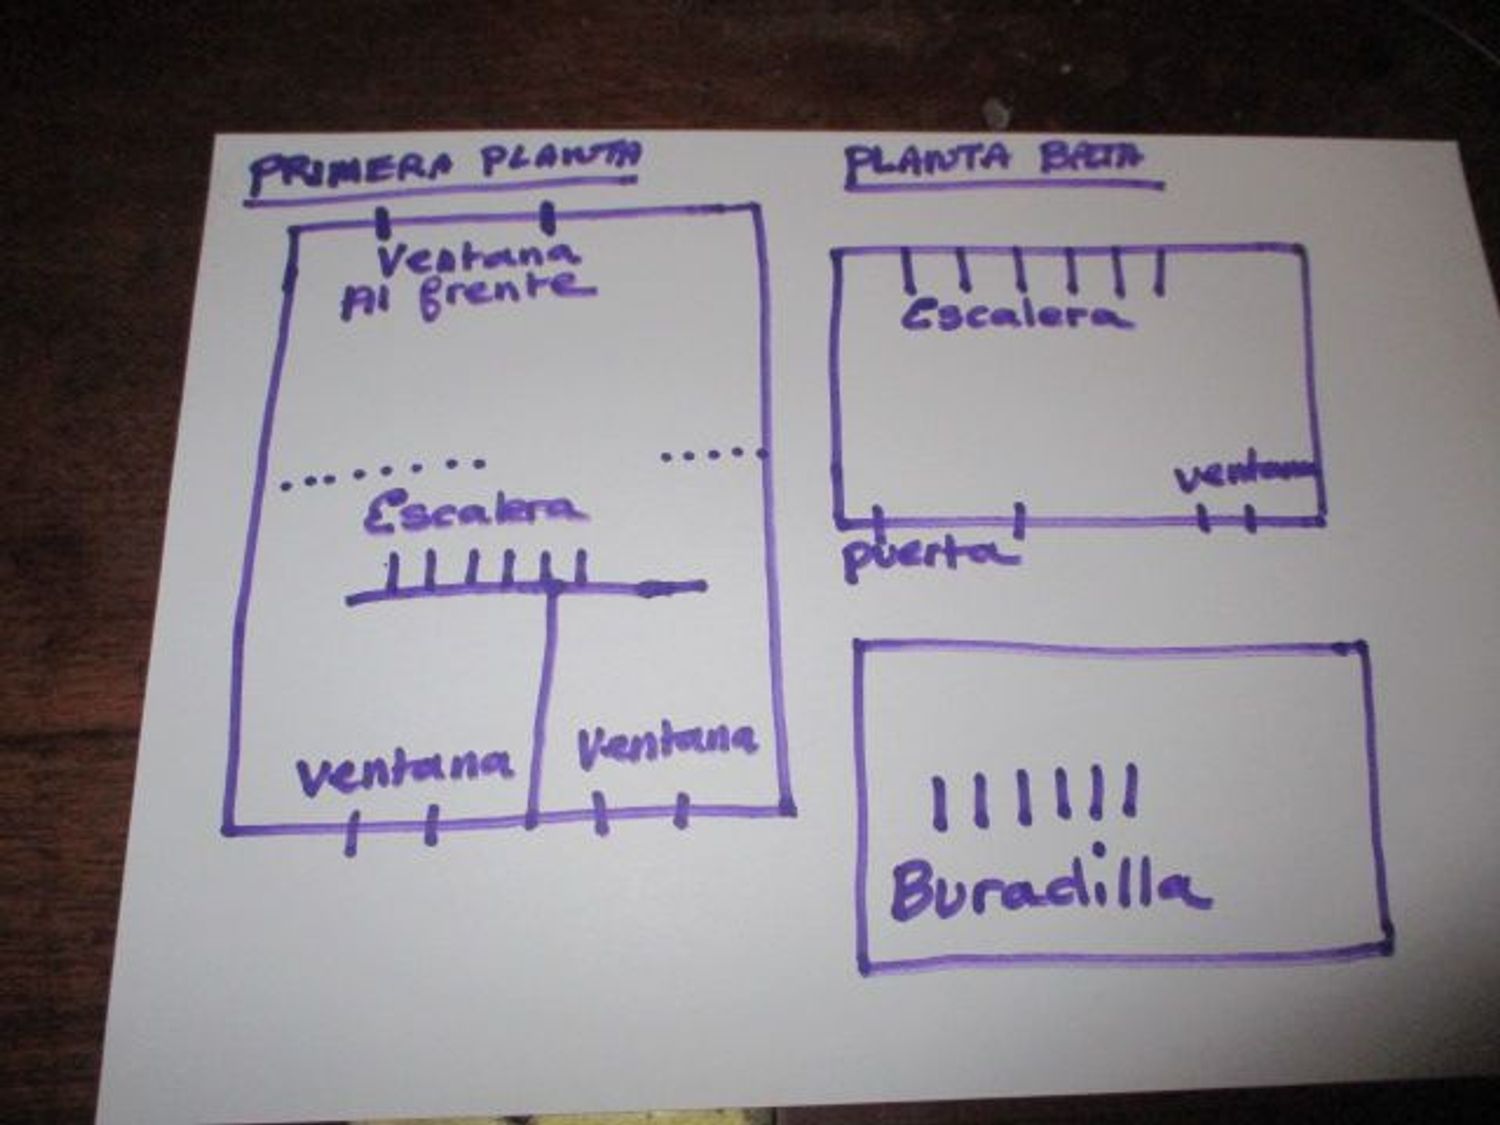 PRIMERA PLANTA
Ventana
Al frente
Escalera
ventana
Ventana
PLANTA BAJA
Escalera
ventana
puerta
Buradilla